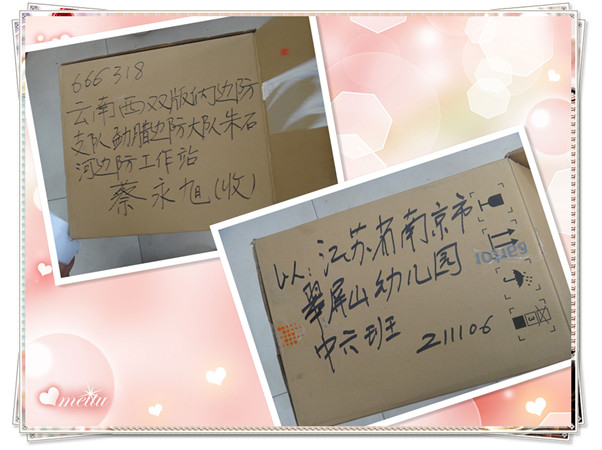 666318
云南西双版纳边防
支队勐腊边防大队朱石
河边防工作站
蔡永旭(收)
从:江苏省南京市
翠屏山幼儿园
中六班 211106
meitu